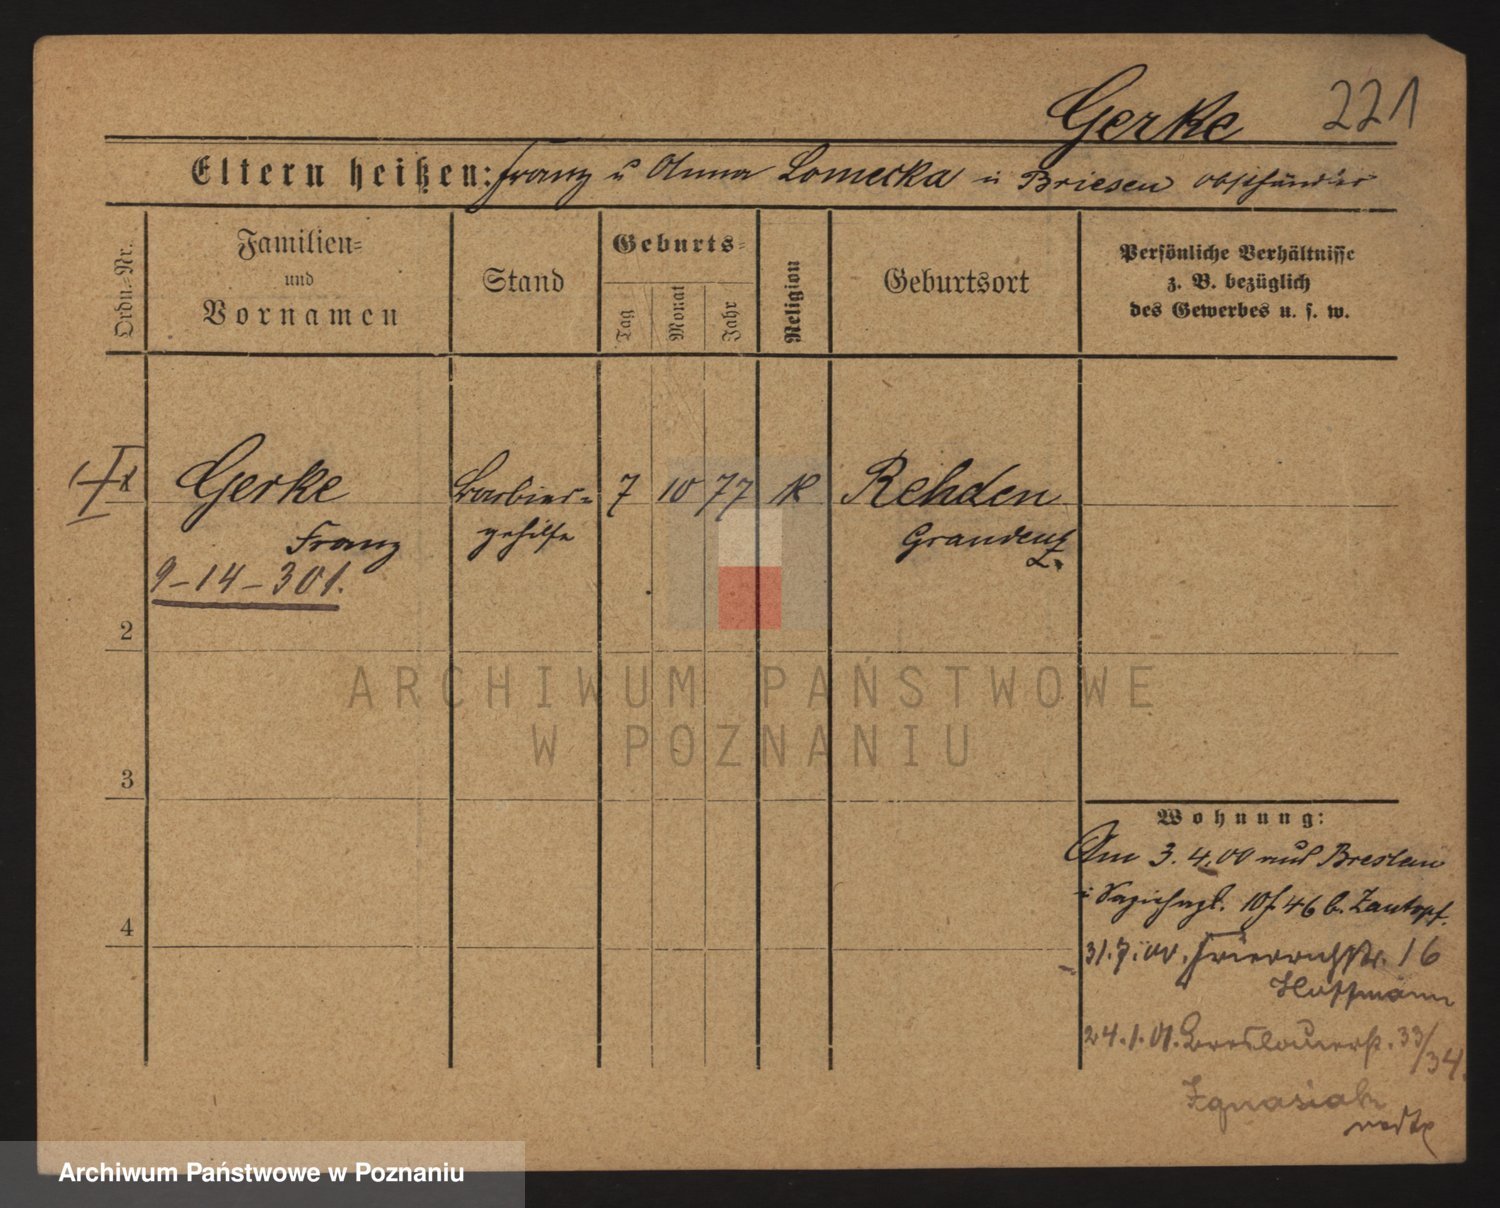 Gerke 221
Eltern heißen: Franz u Anna Lomecka in Briesen
Ordn.-Nr.
Familien-
und
Vornamen
Stand
Geburts-
Tag
Monat
Jahr
Religion
Geburtsort
Persönliche Verhältnisse
z. B. bezüglich
des Gewerbes u. s. w.
Gerke Barbier- 7 10 77 K Rehden
Franz gehilfe Graudenz
9-14-301.
2
3
4
Wohnung:
Am 3.4.00 aus Breslau
46 b. Zantopf.
31.7.00. Friedrichstr. 16
Hoffmann
24.1.01. Breslauerst. 33/34.
Ignasiak
ARCHIWUM PAŃSTWOWE
W POZNANIU
Archiwum Państwowe w Poznaniu